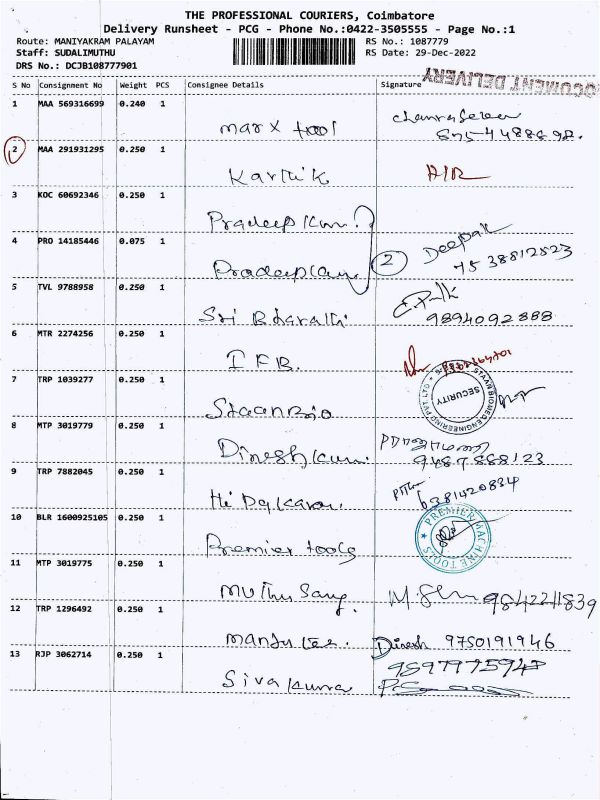 THE PROFESSIONAL COURIERS, Coimbatore
Delivery Runsheet - PCG - Phone No.:0422-3505555 - Page No.:1
Route: MANIYAKRAM PALAYAM RS No.: 1087779
Staff: SUDALIMUTHU RS Date: 29-Dec-2022
DRS No.: DCJB108777901
DOCUMENT DELIVERY
S No Consignment No Weight PCS Consignee Details Signature
1 MAA 569316699 0.240 1 marx tool
2 MAA 291931295 0.250 1 Karthik
3 KOC 60692346 0.250 1 Pradeep Kum
4 PRO 14185446 0.075 1 Pradeep 2 Deepak 7538812823
5 TVL 9788958 0.250 1 Sri Bharathi 9894092888
6 MTR 2274256 0.250 1 IFB.
7 TRP 1039277 0.250 1 Staanbio STAAN BIOMED ENGINEERING PVT LTD SECURITY
8 MTP 3019779 0.250 1 Dinesh Kum 9487888123
9 TRP 7882045 0.250 1 6381420834
10 BLR 1600925105 0.250 1 Premier tools PREMIER MACHINE TOOLS
11 MTP 3019775 0.250 1 Muthu Samy 9842241839
12 TRP 1296492 0.250 1 Dinesh 9750191946
13 RJP 3062714 0.250 1 Siva Kuma